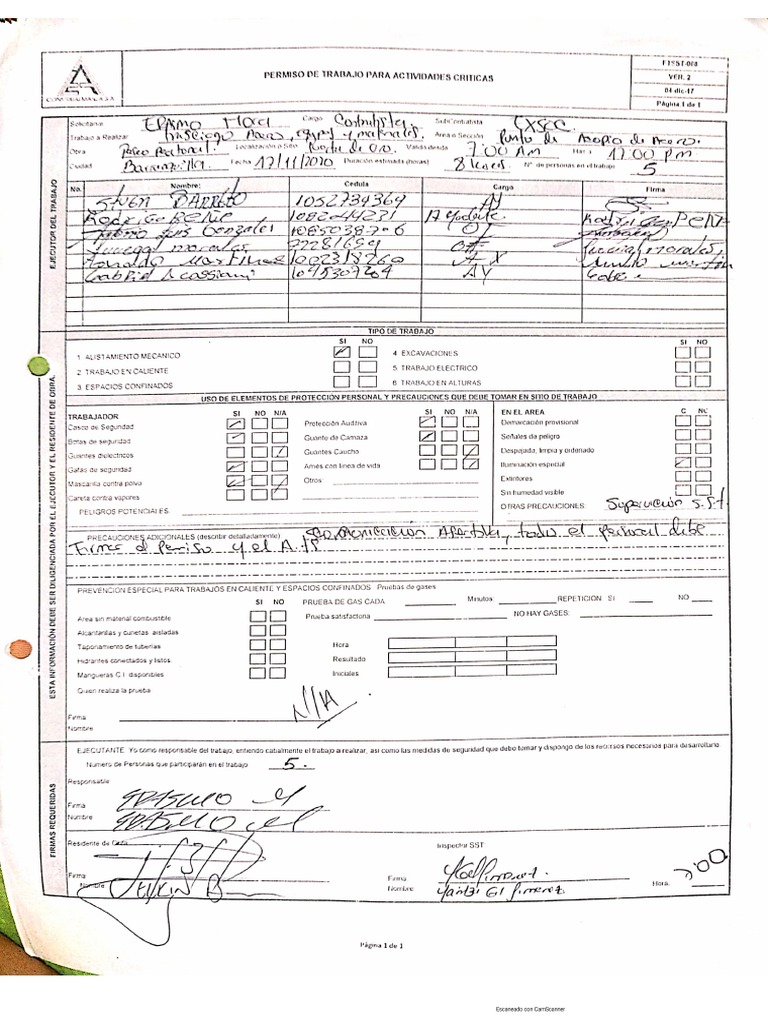 PERMISO DE TRABAJO PARA ACTIVIDADES CRITICAS
VER. 2
04-dic-17
Página 1 de 1
Solicitante Cargo Contratista Sub/Contratista
Trabajo a Realizar y materiales Area o Sección Punto de Acopio de Acero
Obra Localización o Sitio Valido desde 7:00 Am Has a 17:00 pm
Ciudad Barranquilla Fecha 17/11/2020 Duración estimada (horas) 8 N° de personas en el trabajo 5
EJECUTOR DEL TRABAJO
No. Nombre: Cedula Cargo Firma
BARRIO 1052734369 AY
Rodrigo 1082044231 Ayudante
Gonzales 1085038706
morales 72281659
Martinez 1002318260
Gabriel Cassiani 1045307264 AY
TIPO DE TRABAJO
SI NO SI NO
1. ALISTAMIENTO MECANICO 4 EXCAVACIONES
2. TRABAJO EN CALIENTE 5. TRABAJO ELECTRICO
3. ESPACIOS CONFINADOS 6. TRABAJO EN ALTURAS
USO DE ELEMENTOS DE PROTECCIÓN PERSONAL Y PRECAUCIONES QUE DEBE TOMAR EN SITIO DE TRABAJO
TRABAJADOR SI NO N/A SI NO N/A EN EL AREA C NC
Casco de Seguridad Protección Auditiva Demarcación provisional
Botas de seguridad Guante de Carnaza Señales de peligro
Guantes dielectricos Guantes Caucho Despejada, limpia y ordenado
Gafas de seguridad Arnés con linea de vida Iluminación especial
Mascarilla contra polvo Otros: Extintores
Careta contra vapores Sin humedad visible
PELIGROS POTENCIALES: OTRAS PRECAUCIONES: Supervisión S.S.T
PRECAUCIONES ADICIONALES (describir detalladamente) Comunicación Asertiva, todo el personal debe
Firmar el Permiso y el A.T.S
ESTA INFORMACIÓN DEBE SER DILIGENCIADA POR EL EJECUTOR Y EL RESIDENTE DE OBRA.
PREVENCIÓN ESPECIAL PARA TRABAJOS EN CALIENTE Y ESPACIOS CONFINADOS Pruebas de gases
SI NO PRUEBA DE GAS CADA Minutos: REPETICION SI NO
Area sin material combustible Prueba satisfactoria NO HAY GASES:
Alcantarillas y cunetas aisladas
Taponamiento de tuberias Hora
Hidrantes conectados y listos Resultado
Mangueras C.I. disponibles Iniciales
Quien realiza la prueba
N/A
Firma
Nombre
FIRMAS REQUERIDAS
EJECUTANTE Yo como responsable del trabajo, entiendo cabalmente el trabajo a realizar, así como las medidas de seguridad que debo tomar y dispongo de los recursos necesarios para desarrollarlo
Numero de Personas que participarán en el trabajo 5.
Responsable
Firma
Nombre
Residente de Obra Inspector SST
Firma Firma Hora:
Nombre Nombre Gil Jimenez
Página 1 de 1
Escaneado con CamScanner